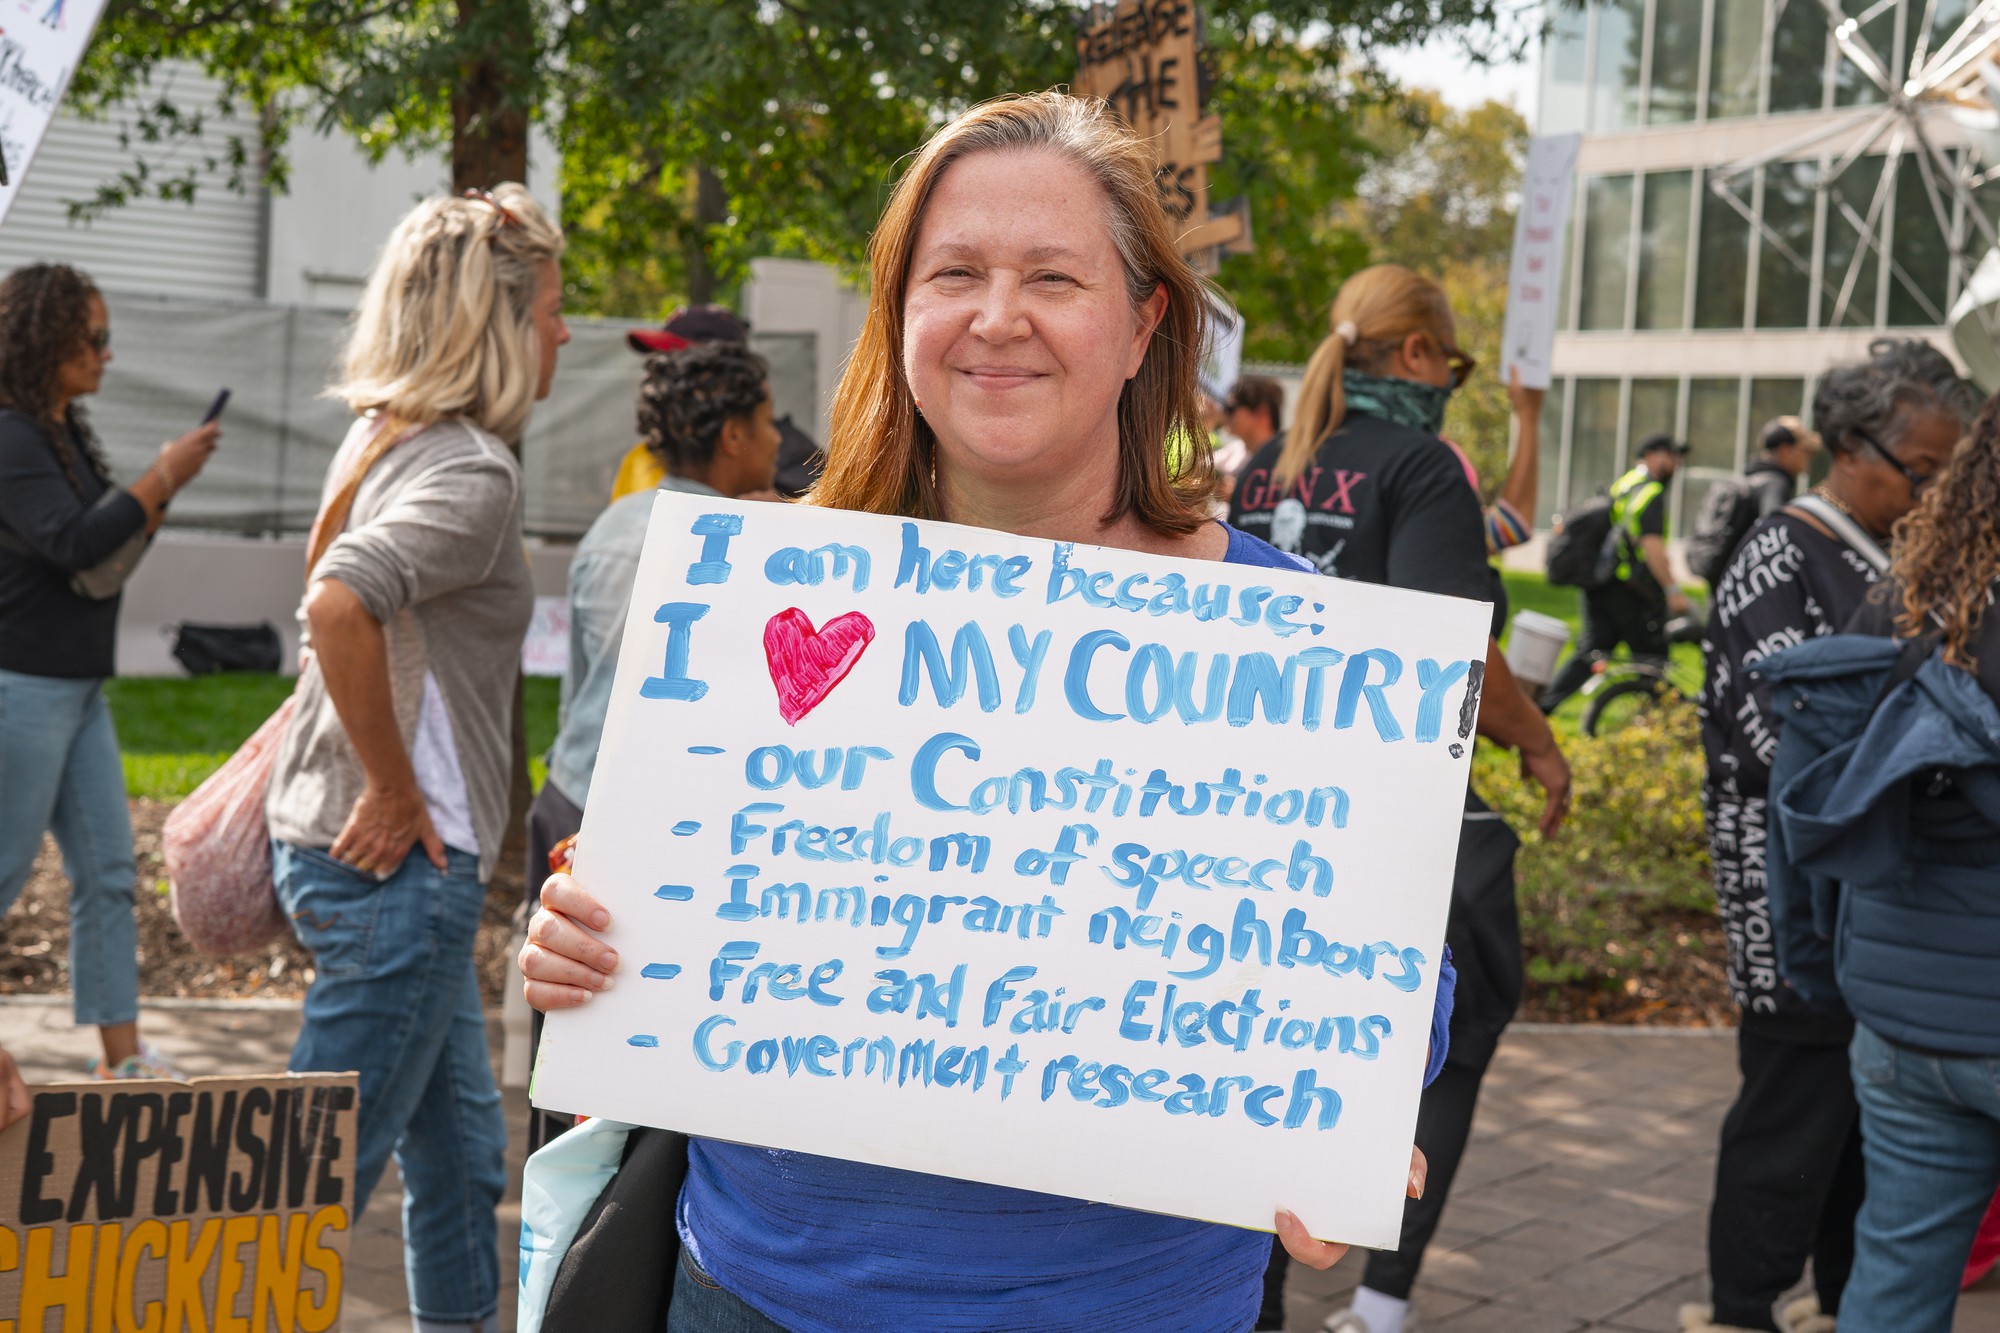 RELEASE
THE
I am here because:
I ❤ MY COUNTRY!
- our Constitution
- Freedom of speech
- Immigrant neighbors
- Free and Fair Elections
- Government research
EXPENSIVE
CHICKENS
GEN X
MAKE YOUR